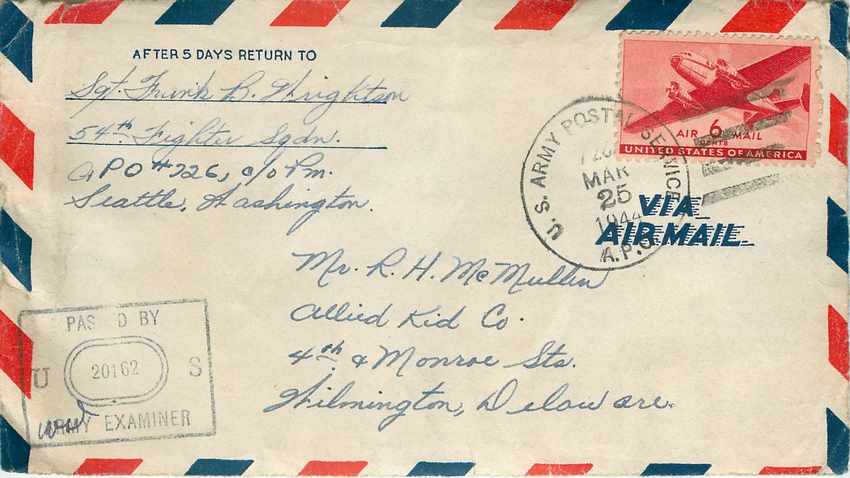 AFTER 5 DAYS RETURN TO
Sgt. Frank B. Wrightson
54th Fighter Sqdn.
APO #726, c/o Pm.
Seattle, Washington.
AIR 6 MAIL
CENTS
UNITED STATES OF AMERICA
U. S. ARMY POSTAL SERVICE
MAR
25
1944
A.P.O.
VIA
AIR MAIL
Mr. R. H. McMullin
Allied Kid Co.
4th & Monroe Sts.
Wilmington, Delaware.
PASSED BY
U 20162 S
ARMY EXAMINER